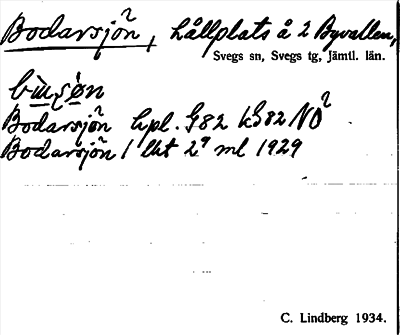 Bodarsjön, hållplats å 2 Byvallen,
Svegs sn, Svegs tg, Jämtl. län.
Bodarsjön hpl. G82 kS82 NO
Bodarsjön 1 lht 2⁹ ml 1929
C. Lindberg 1934.